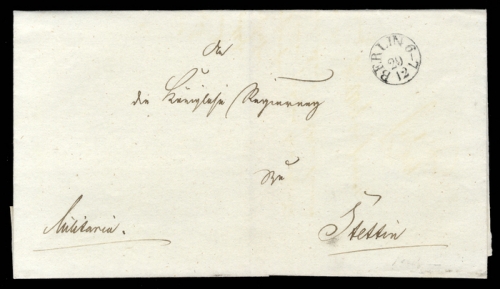 An
BERLIN 6-7
20
12
die Königliche Regierung
zu
Militaria.
Stettin